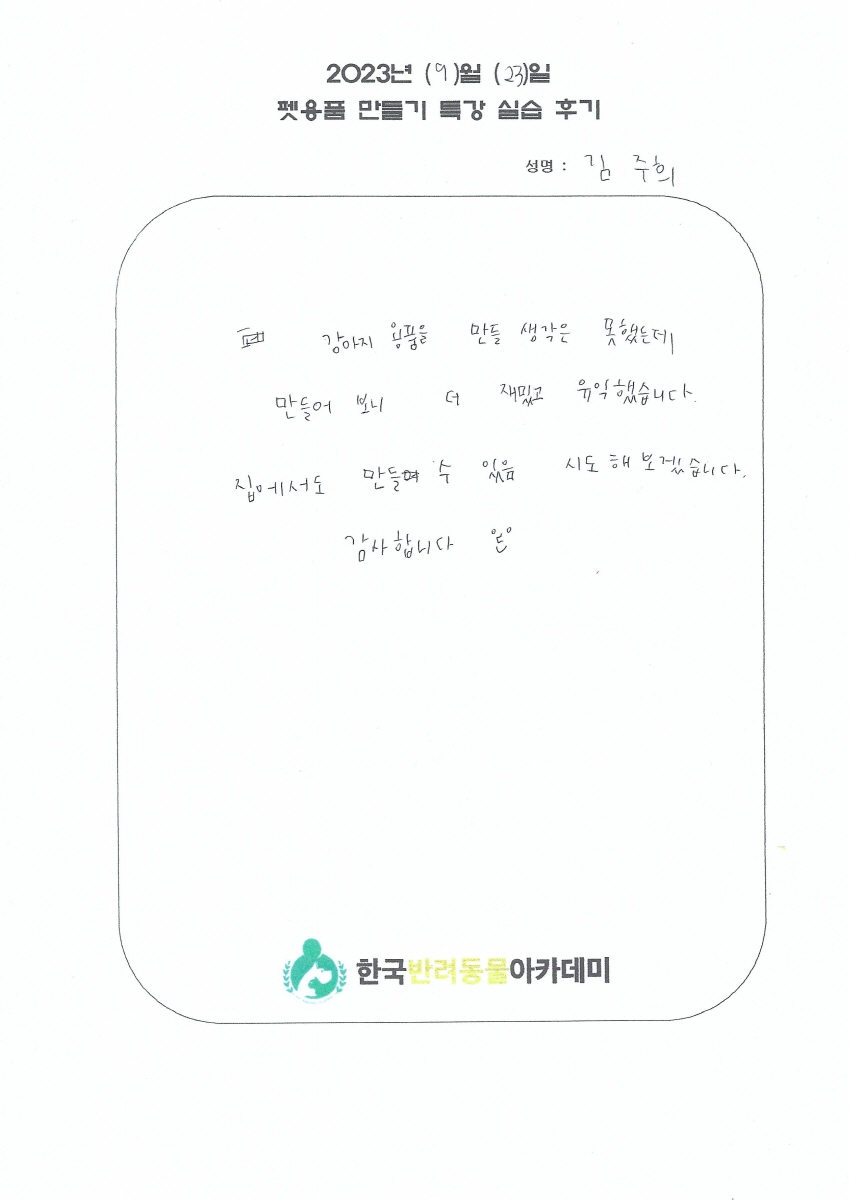 2023년 (9)월 (23)일
펫용품 만들기 특강 실습 후기
성명 : 김 주희
강아지 용품을 만들 생각은 못했는데
만들어 보니 더 재밌고 유익했습니다.
집에서도 만들 수 있음 시도해 보겠습니다.
감사합니다
한국반려동물아카데미